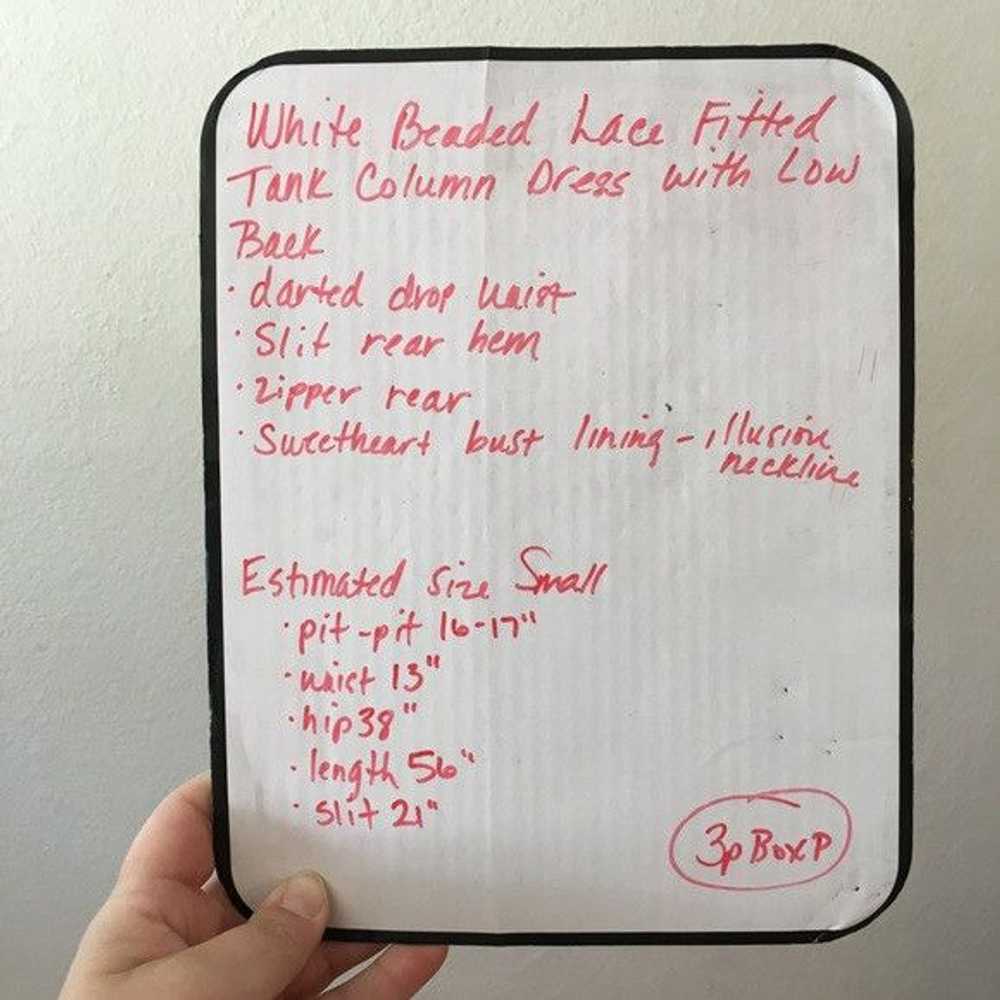 White Beaded Lace Fitted
Tank Column Dress with Low
Back
· darted drop waist
· Slit rear hem
· Zipper rear
· Sweetheart bust lining - illusion
neckline
Estimated size Small
· pit-pit 16-17"
· waist 13"
· hip 38"
· length 56"
· slit 21"
3p Box P